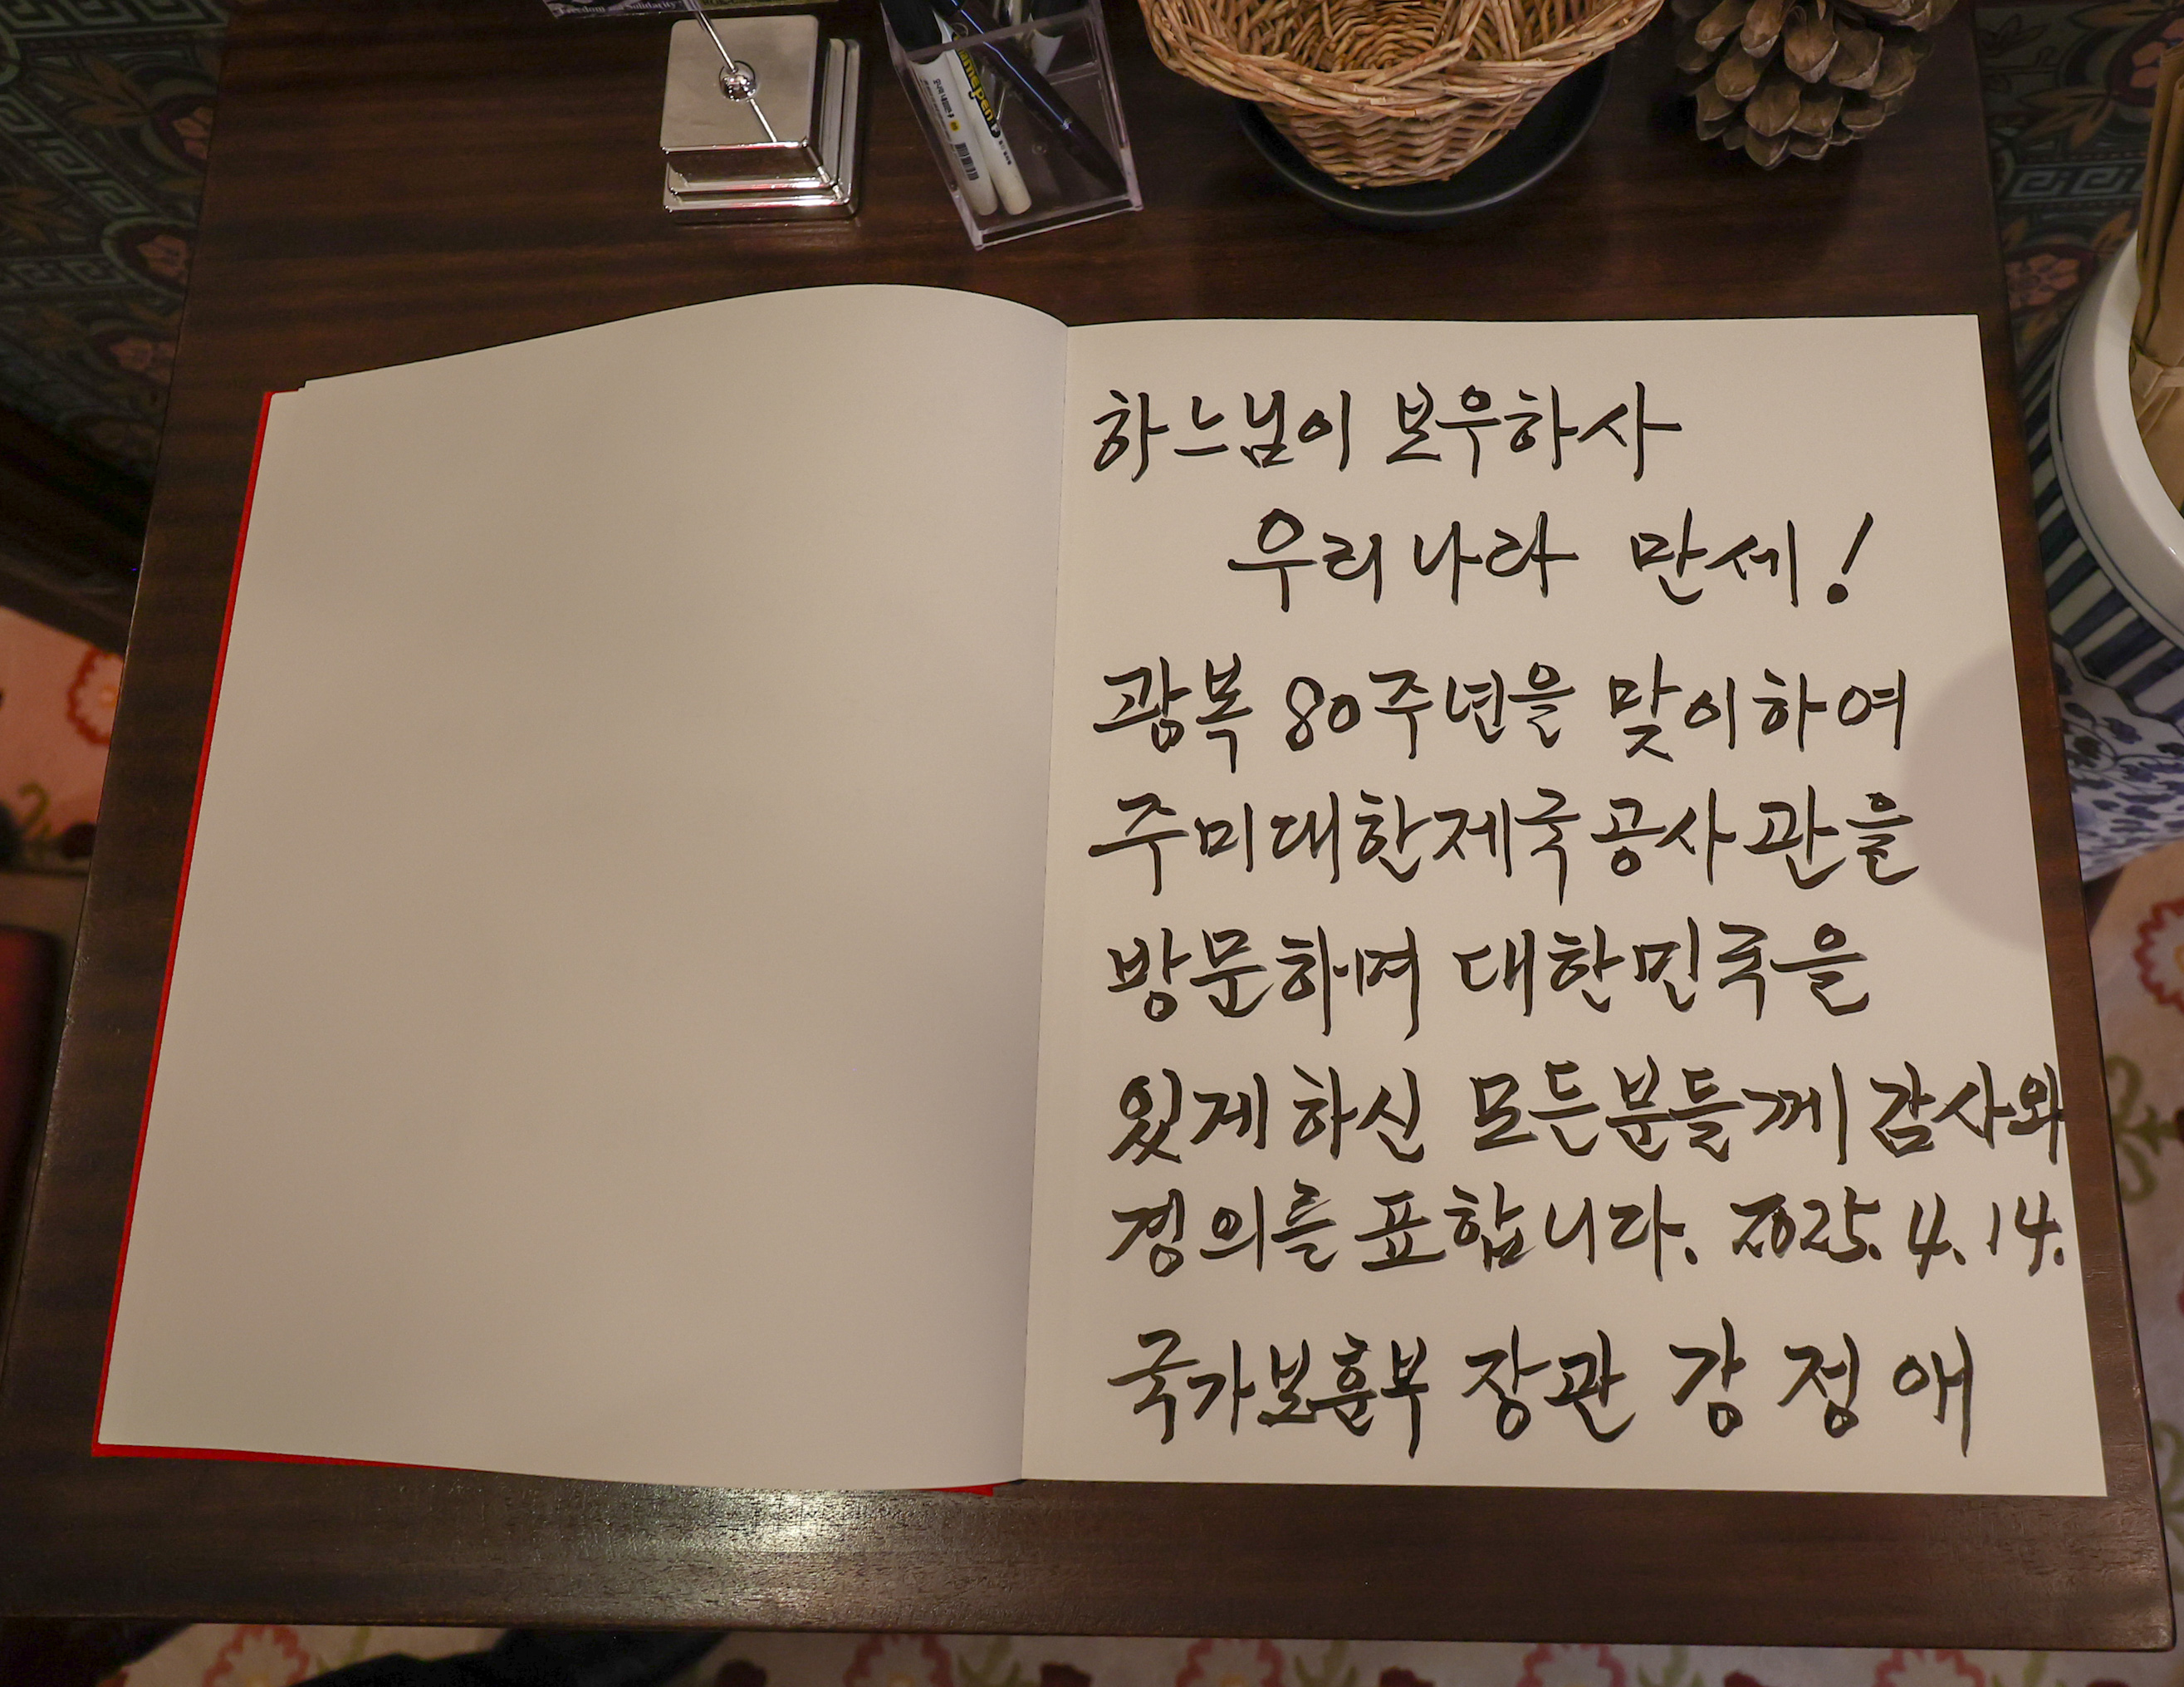 Freedom and Solidarity
name pen
하느님이 보우하사
우리나라 만세!
광복 80주년을 맞이하여
주미대한제국공사관을
방문하며 대한민국을
있게 하신 모든분들께 감사와
경의를 표합니다. 2025. 4. 14.
국가보훈부 장관 강정애